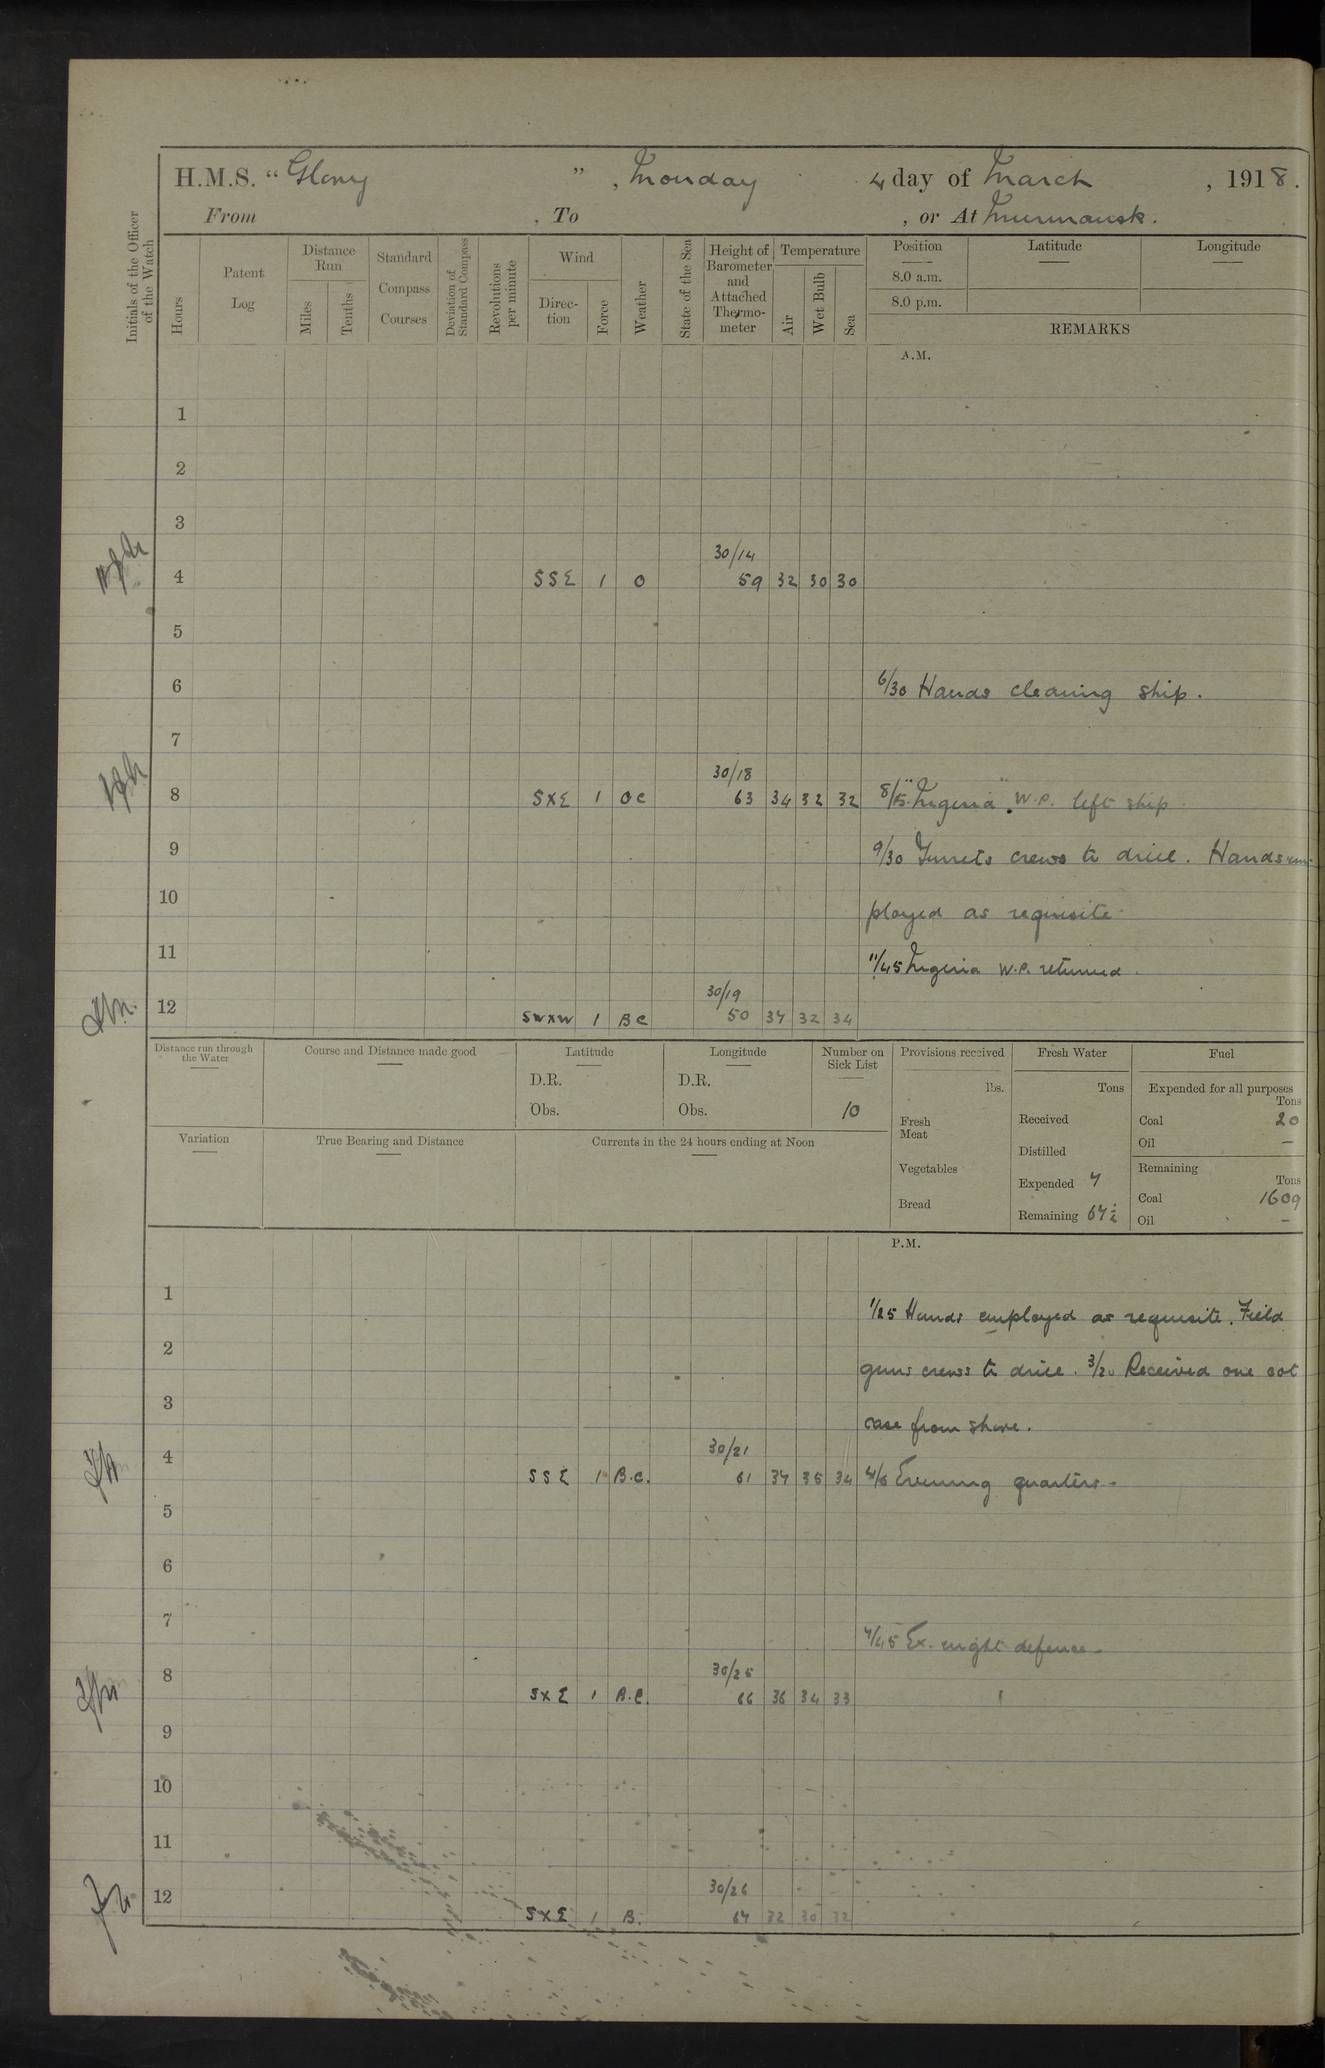 H.M.S. "Glory", Monday 4 day of March, 1918.
From , To , or At Murmansk.
Initials of the Officer of the Watch
Hours
Patent Log
Distance Run
Miles
Tenths
Standard Compass Courses
Deviation of Standard Compass
Revolutions per minute
Wind
Direc-tion
Force
Weather
State of the Sea
Height of Barometer and Attached Thermo-meter
Temperature
Air
Wet Bulb
Sea
Position
8.0 a.m.
8.0 p.m.
Latitude
Longitude
REMARKS
A.M.
1
2
3
30/14
4 SSE 1 O 59 32 30 30
5
6 6/30 Hands cleaning ship.
7
30/18
8 SXE 1 OC 63 34 32 32 8/15 "Nigeria" W.P. left ship.
9 9/30 Turrets crews to drill. Hands em-
10 ployed as requisite.
11 11/45 Nigeria W.P. returned.
30/19
12 SWXW 1 BC 50 34 32 34
Distance run through the Water
Course and Distance made good
Latitude
D.R.
Obs.
Longitude
D.R.
Obs.
Number on Sick List
10
Provisions received
lbs.
Fresh Meat
Vegetables
Bread
Fresh Water
Tons
Received
Distilled
Expended 7
Remaining 67½
Fuel
Expended for all purposes
Tons
Coal 20
Oil —
Remaining
Tons
Coal 1609
Oil —
Variation
True Bearing and Distance
Currents in the 24 hours ending at Noon
P.M.
1 1/25 Hands employed as requisite. Field
2 guns crews to drill. 3/20 Received one cot
3 case from shore.
30/21
4 SSE 1 B.C. 61 37 35 34 4/5 Evening quarters.
5
6
7 7/45 Ex. night defence.
30/25
8 SXE 1 B.C. 66 36 34 33
9
10
11
30/26
12 SXE 1 B. 67 32 30 32